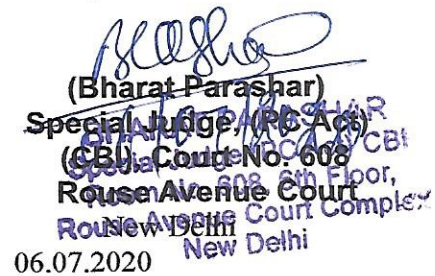 (Bharat Parashar)
Special Judge, (PC Act)
(CBI), Court No. 608
Rouse Avenue Court
New Delhi
06.07.2020
BHARAT PARASHAR
Special Judge (PC Act) CBI
608, 6th Floor,
Rouse Avenue Court Complex
New Delhi